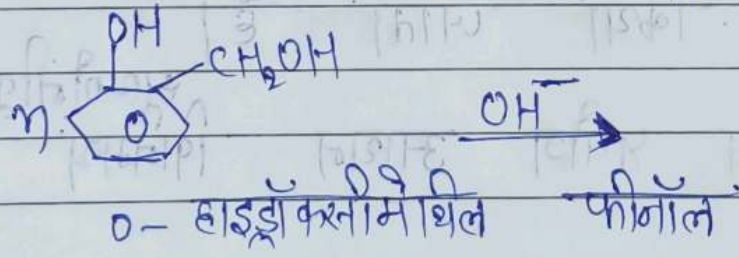 OH
CH₂OH
n.
OH⁻
o- हाइड्रॉक्सीमेथिल फीनॉल